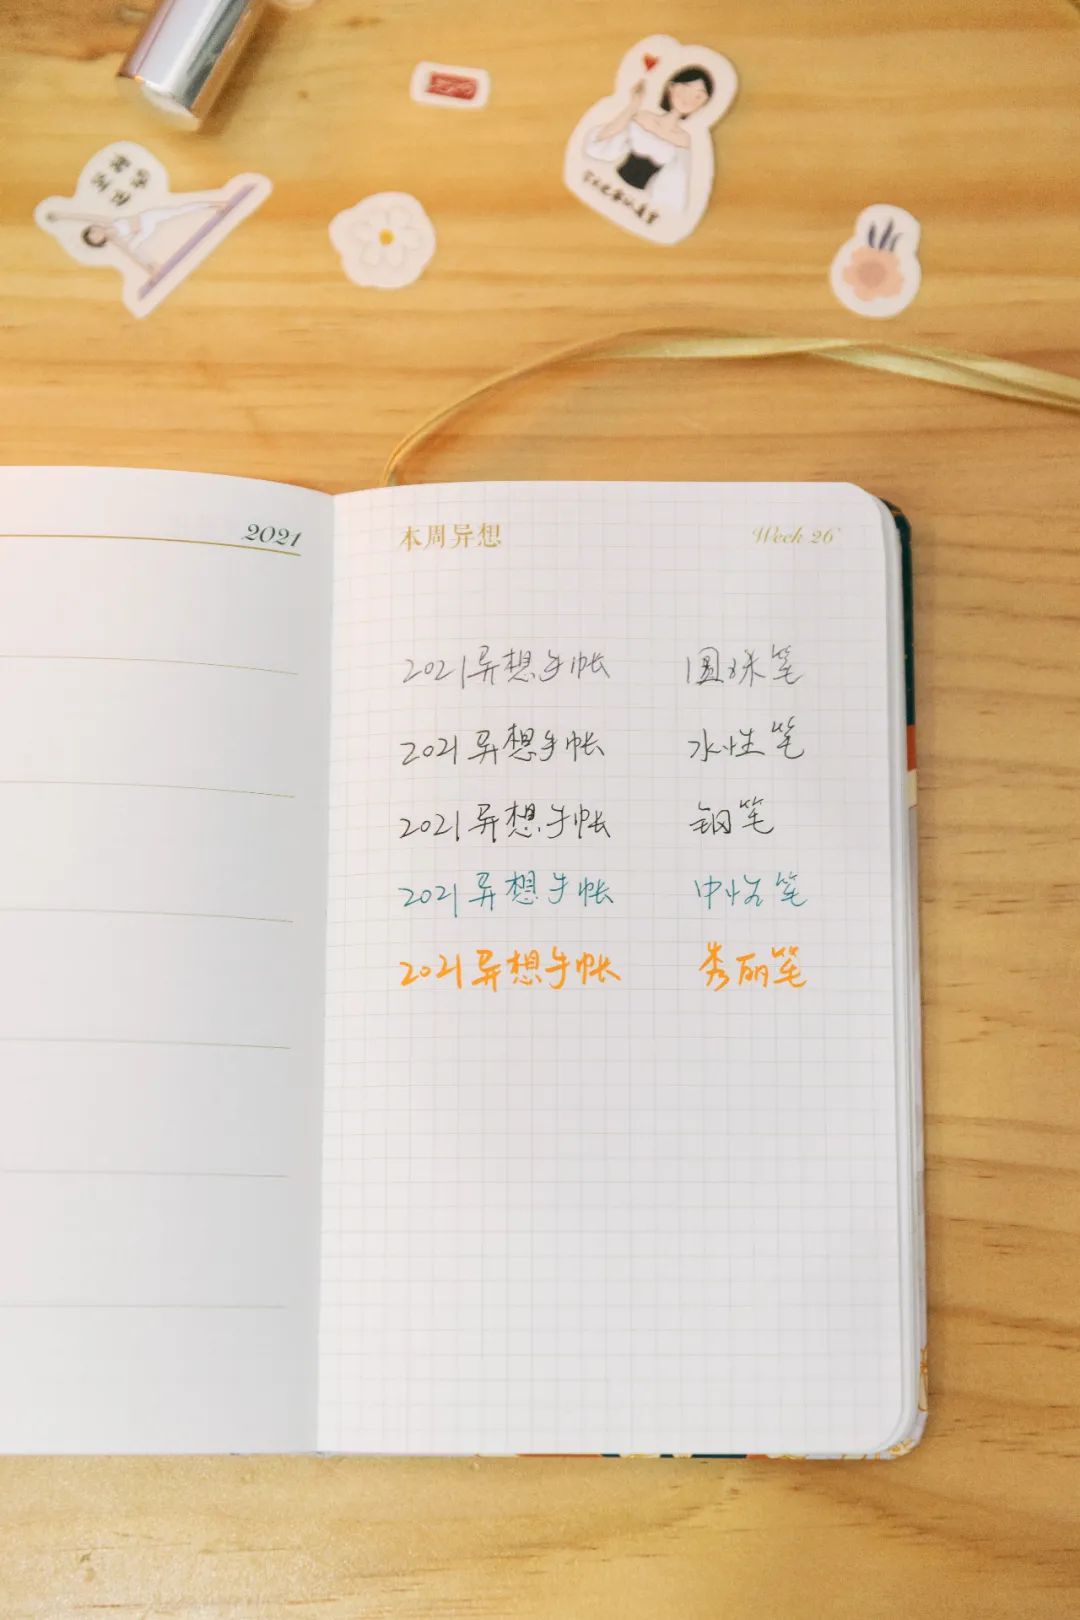 2021
本周异想 Week 26
2021异想手帐 圆珠笔
2021异想手帐 水性笔
2021异想手帐 钢笔
2021异想手帐 中性笔
2021异想手帐 秀丽笔